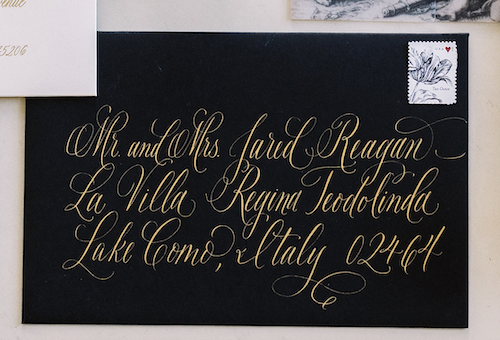 Mr. and Mrs. Jared Reagan
La Villa Regina Teodolinda
Lake Como, Italy 02464
5206